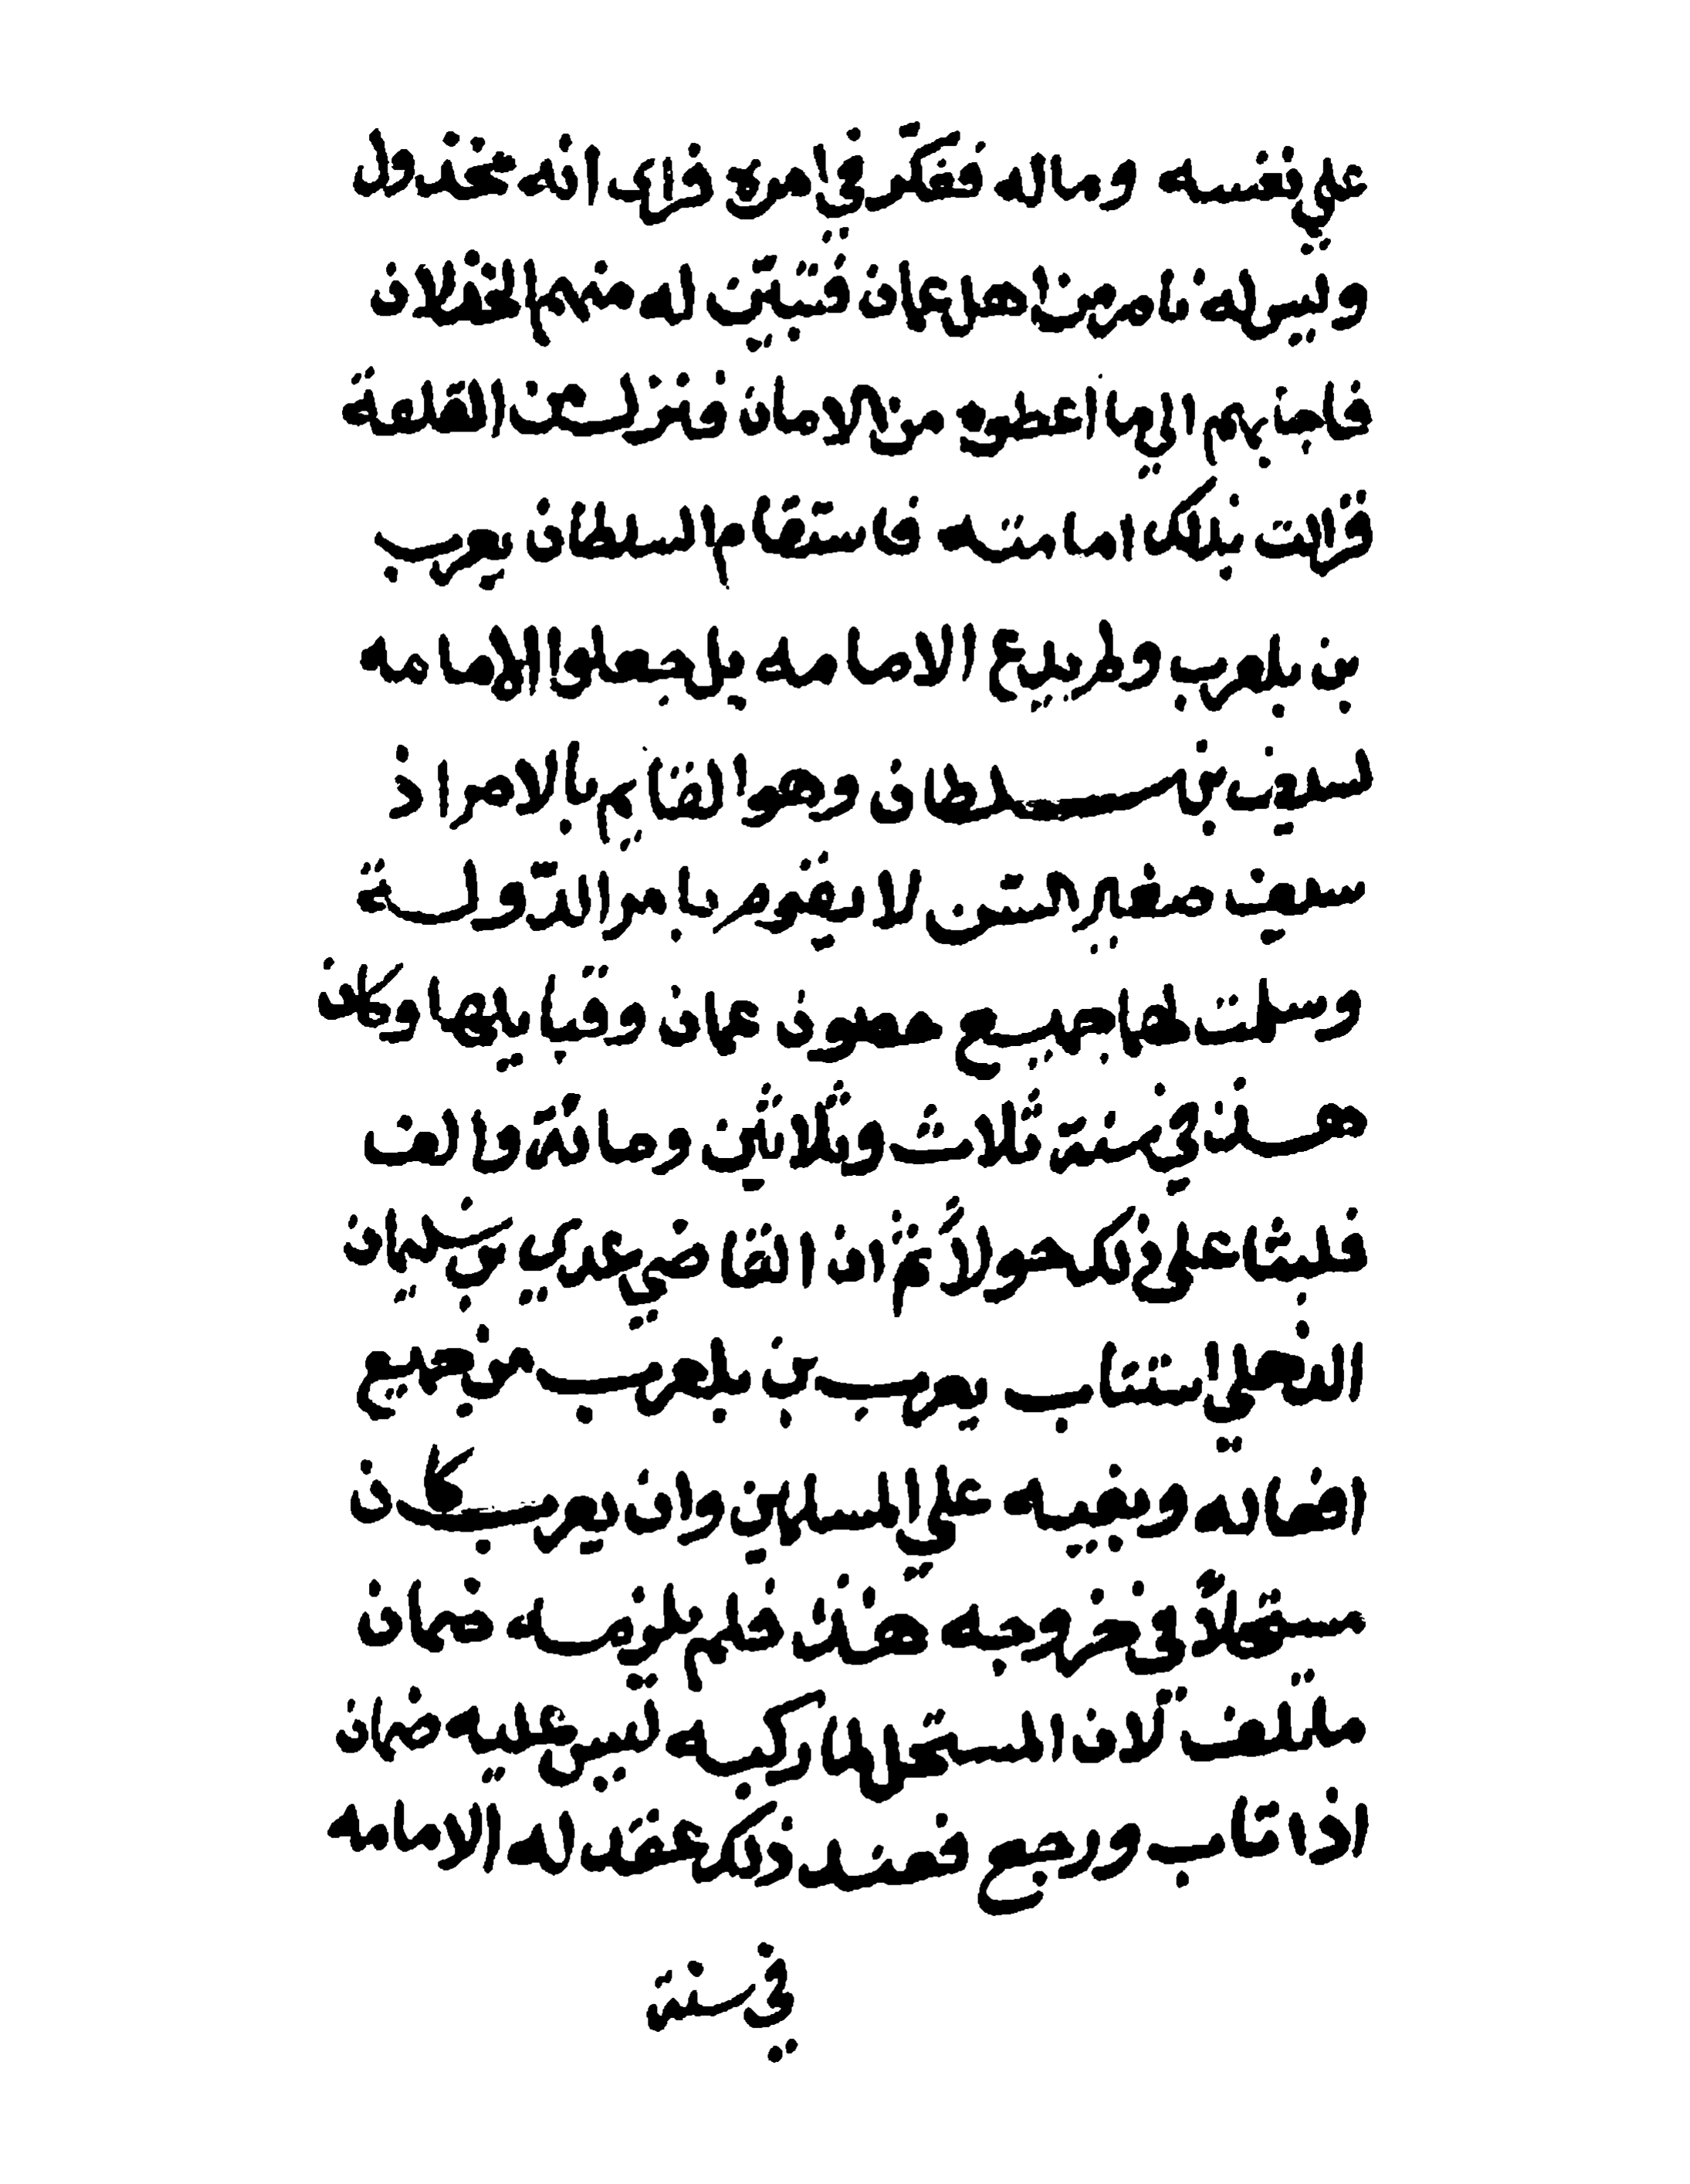 علي نفسه وماله ففكّر في امره فراى انه مخذول
وليس له ناصر من اهل عمان فتبيّن له منهم الخذلان
فاجابهم الي ما اعطوه من الامان فنزل من القلعة
فزالت بذلك امامته فاستقام السلطان يعرب
بن بلعرب ولم يدع الامامه بل جعلوا الامامه
لسيف بن سلطان وهو القايم بالامر اذ
سيف صغير السّن لا يقوم بامر الدّولة
وسلمت لهما جميع حصون عمان وقبايلها وكان
هذا في سنة ثلاث وثلاثين ومائة والف
فلبثا على ذلك حولاً ثم ان القاضي عدي بن سليمان
الذهلي استتاب يعرب بن بلعرب من جميع
افعاله وبغيه علي المسلمين وان يعرب كان
مستحلاً في خروجه هذا فلم يلزمه ضمان
ما تلف لان المستحل لما ركبه ليس عليه ضمان
اذا تاب ورجع فعند ذلك عقد له الامامه
في سنة